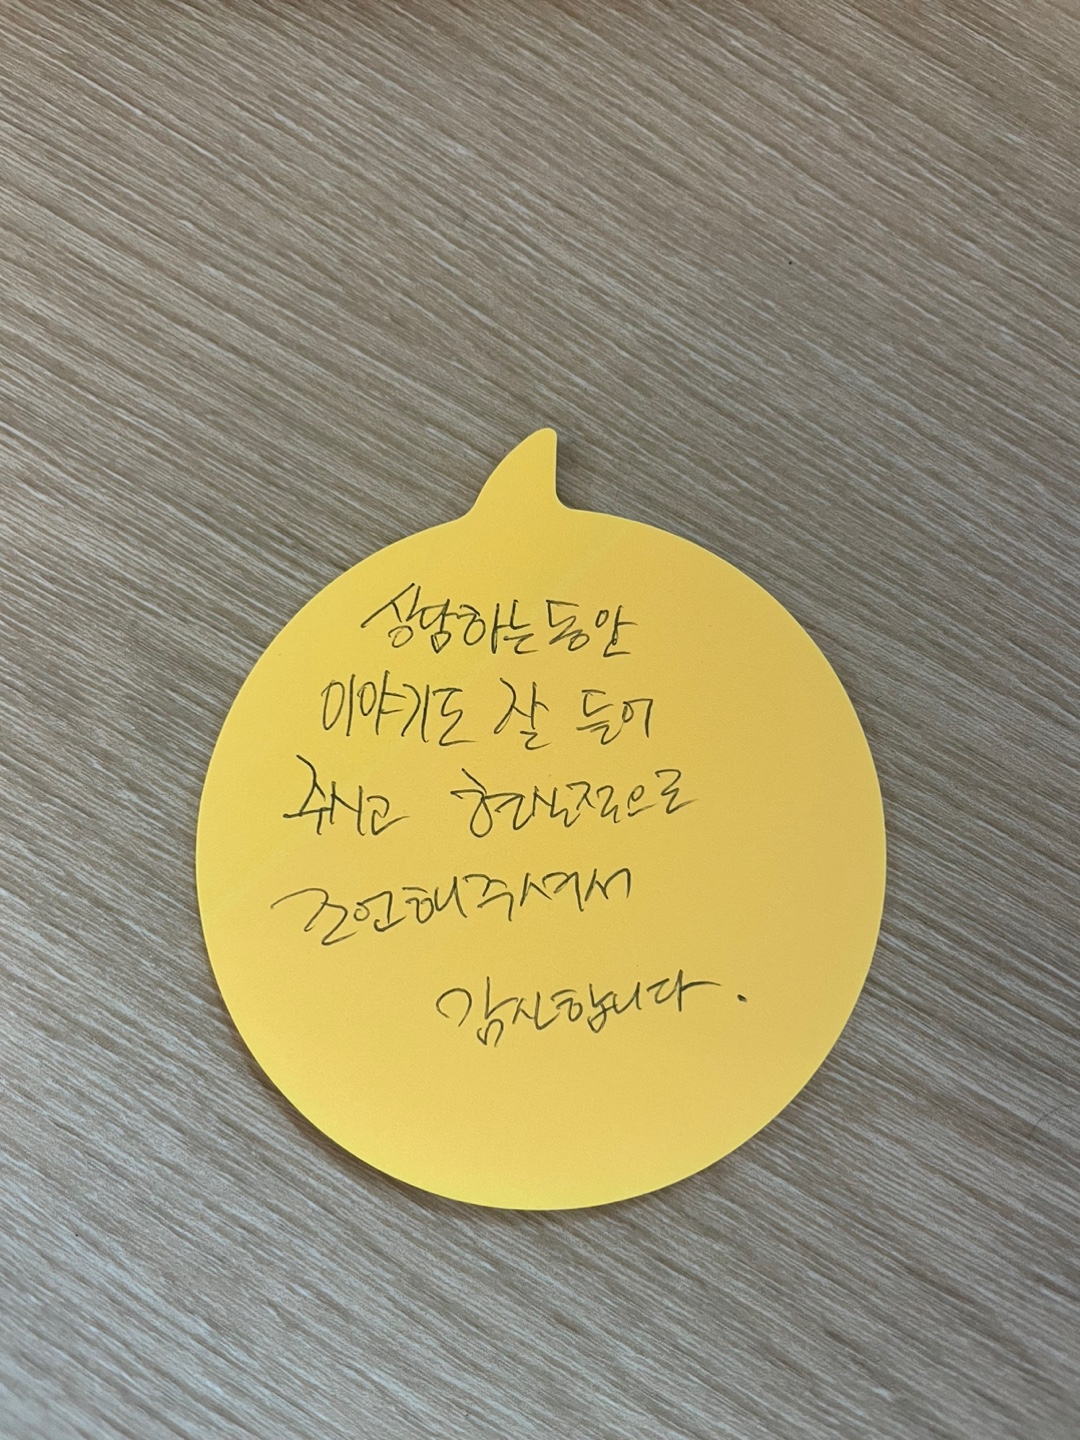 상담하는동안
이야기도 잘 들어
주시고 현실적으로
조언해주셔서
감사합니다.